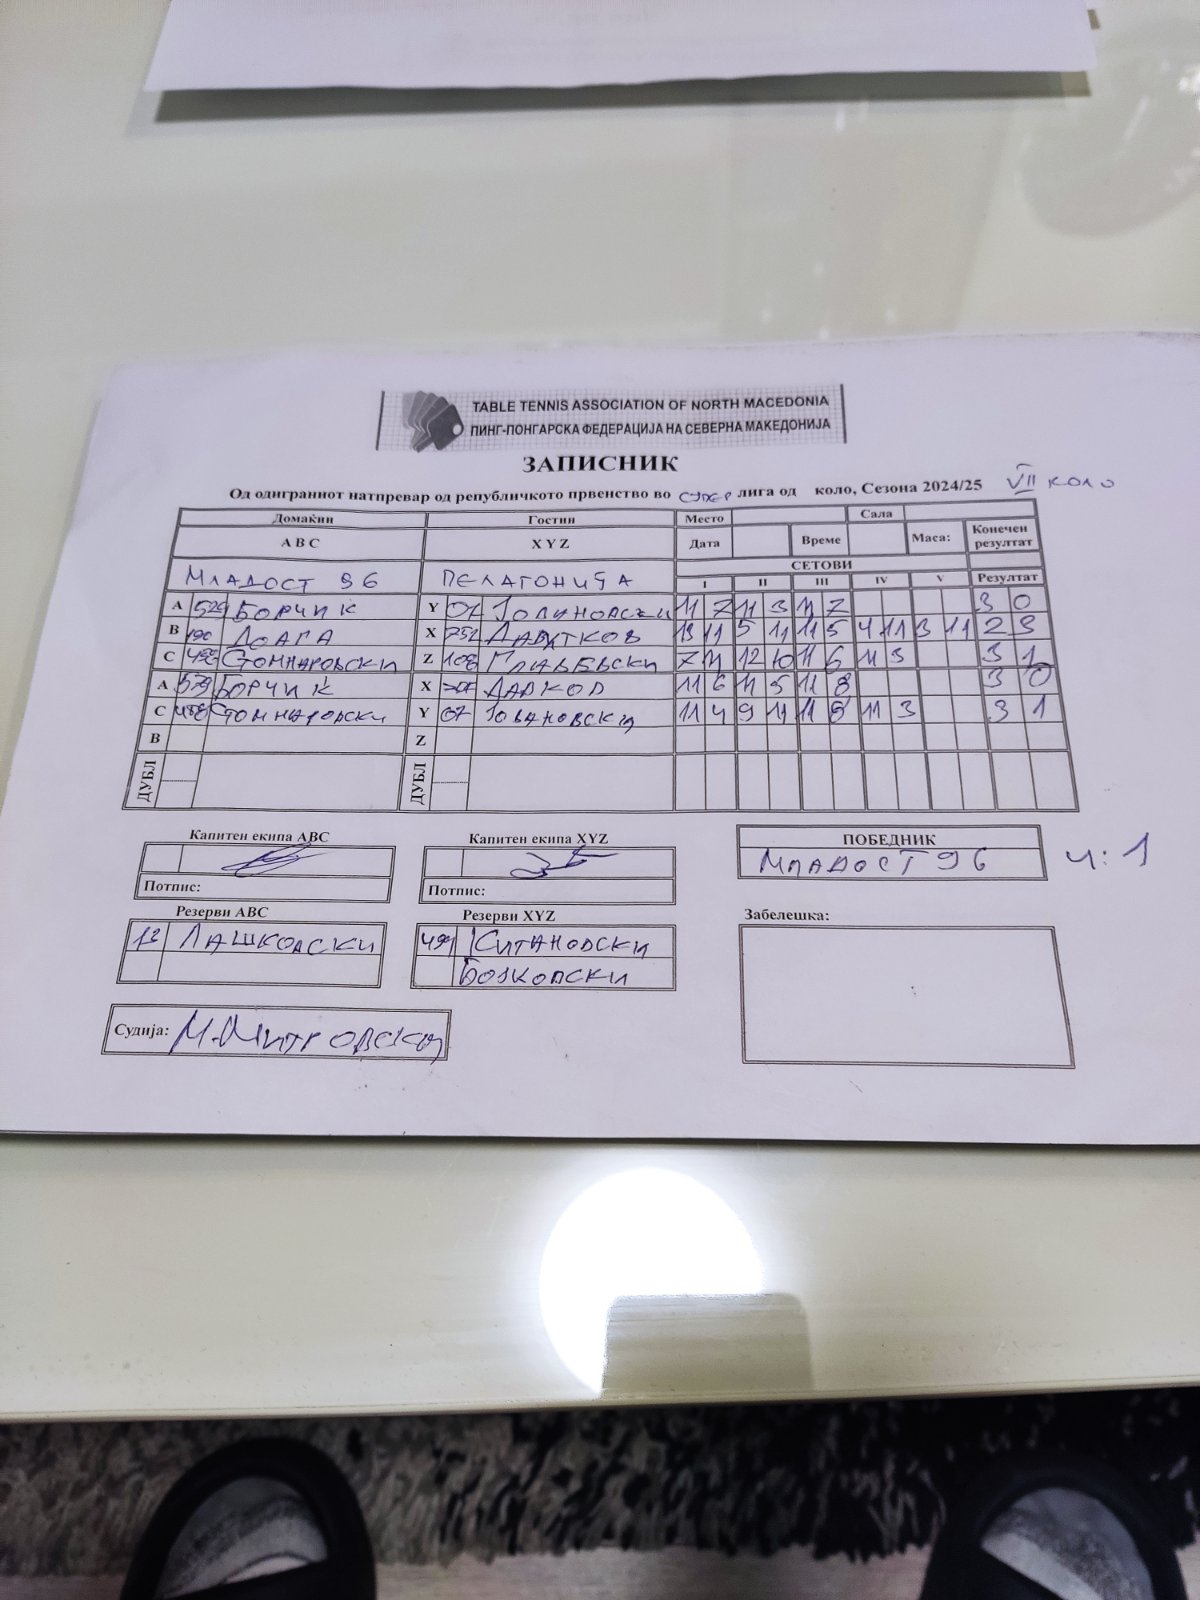 TABLE TENNIS ASSOCIATION OF NORTH MACEDONIA
ПИНГ-ПОНГАРСКА ФЕДЕРАЦИЈА НА СЕВЕРНА МАКЕДОНИЈА
ЗАПИСНИК
Од одиграниот натпревар од републичкото првенство во СУПЕР лига од коло, Сезона 2024/25 VII КОЛО
Домаќин Гости Место Сала
A B C X Y Z Дата Време Маса: Конечен резултат
СЕТОВИ
МЛАДОСТ 96 ПЕЛАГОНИЈА I II III IV V Резултат
A 529 БОРЧИК Y 07 11 7 11 3 11 7 3 0
B 190 ДОАГА X 752 13 11 5 11 11 5 4 11 3 11 2 3
C СТОЈНАРОВСКИ Z 108 7 11 12 10 11 6 11 3 3 1
A БОРЧИК X 11 6 11 5 11 8 3 0
C Y 07 ЈОВАНОВСКИ 11 4 9 11 11 8 11 3 3 1
B Z
ДУБЛ ДУБЛ
Капитен екипа ABC Капитен екипа XYZ ПОБЕДНИК
МЛАДОСТ 96 4:1
Потпис: Потпис:
Резерви ABC Резерви XYZ Забелешка:
12 ЛАШКОВСКИ 499
БОЈКОВСКИ
Судија: М. МИТРОВСКИ